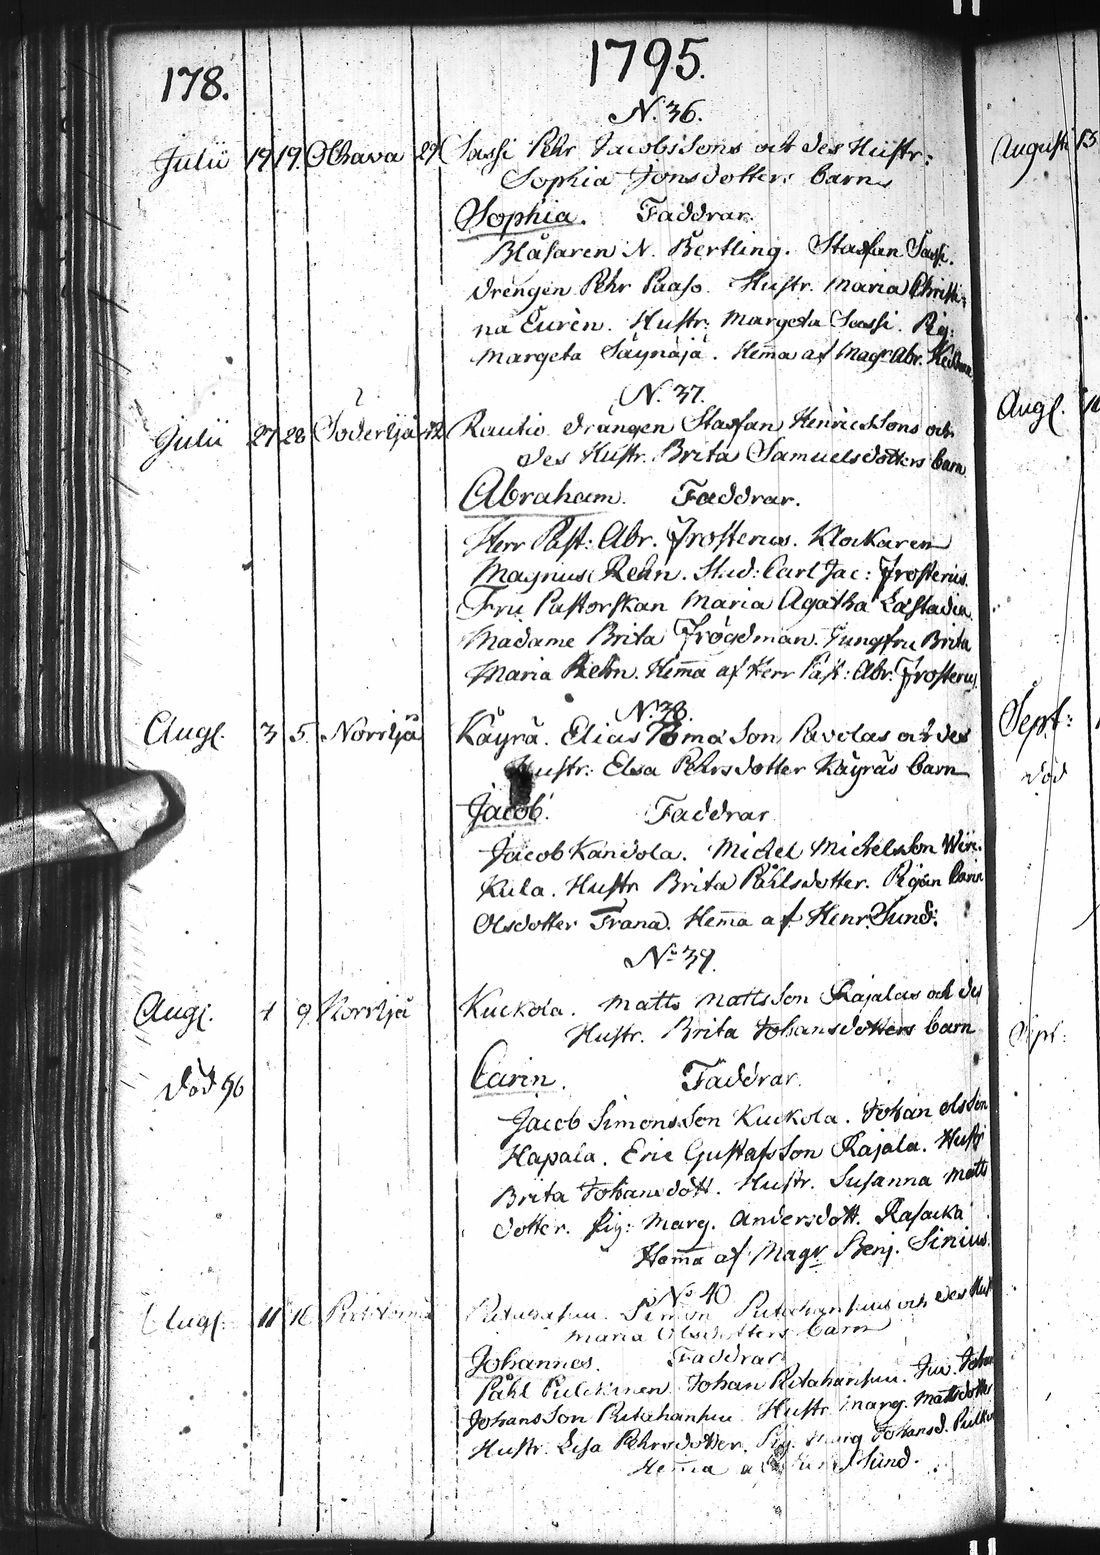 178.
1795.
N. 36.
Julii 19 19. Olhava 29 Sassi Pehr Jacobssons och des Hustr:
Sophia Jonsdotters barn
Sophia. Faddrar.
Blåsaren N. Bertling. Staffan Sassi.
drengen Pehr Paaso. Hustr. Maria Christi-
na Euren. Hustr. Margeta Sassi. Pig:
Margeta Säynäjä. Hema af Magr. Abr.
N. 37.
Julii 27 28 Söderijä 42 Rautio drängen Staffan Henricssons och
des Hustr. Brita Samuelsdotters barn
Abraham. Faddrar.
Herr Past: Abr. Frosterus. Klockaren
Magnus Rehn. Stud: Carl Jac: Frosterus.
Fru Pastorskan Maria Agatha Læstadia
Madame Brita Frogdman. Jungfru Brita
Maria Rehn. Hema af Herr Past: Abr. Frosterus.
N. 38.
Augl. 3 5. Norrijä Käyrä. Elias Toma Son Pavolas och des
Hustr: Elsa Pehrsdotter Käyräs barn
Jacob. Faddrar
Jacob Kandola. Michel Michelsson
Kula. Hustr Brita Påhlsdotter. Pigan Carin
Olsdotter Frana. Hema af Henr. Sund:
No 39.
Augl. 9 Norrijä Kuckola. Matts Mattsson Rajalas och des
Hustr. Brita Johansdotters barn
död 96
Carin. Faddrar.
Jacob Simonsson Kuckola. Johan Olsson
Hapala. Eric Gustafsson Rajala. Hustr
Brita Johansdott. Hustr. Susanna Matts
dotter. Pig: Marg. Andersdott. Rasacka
Hema af Magr Benj. Sirius.
No 40
Augl. 11 16 Simon Ritahanhuu och des Hust
Maria Olsdotters barn
Johannes. Faddrar
Påhl Pulckinen Johan Ritahanhuu.
Johansson Ritahanhuu Hustr Marg. Mattsdotter
Hustr. Lisa Pehrsdotter. Pig. Marg Johansd.
Hema Sund.
Augusti 13
Augl.
Sept:
död
Sept: